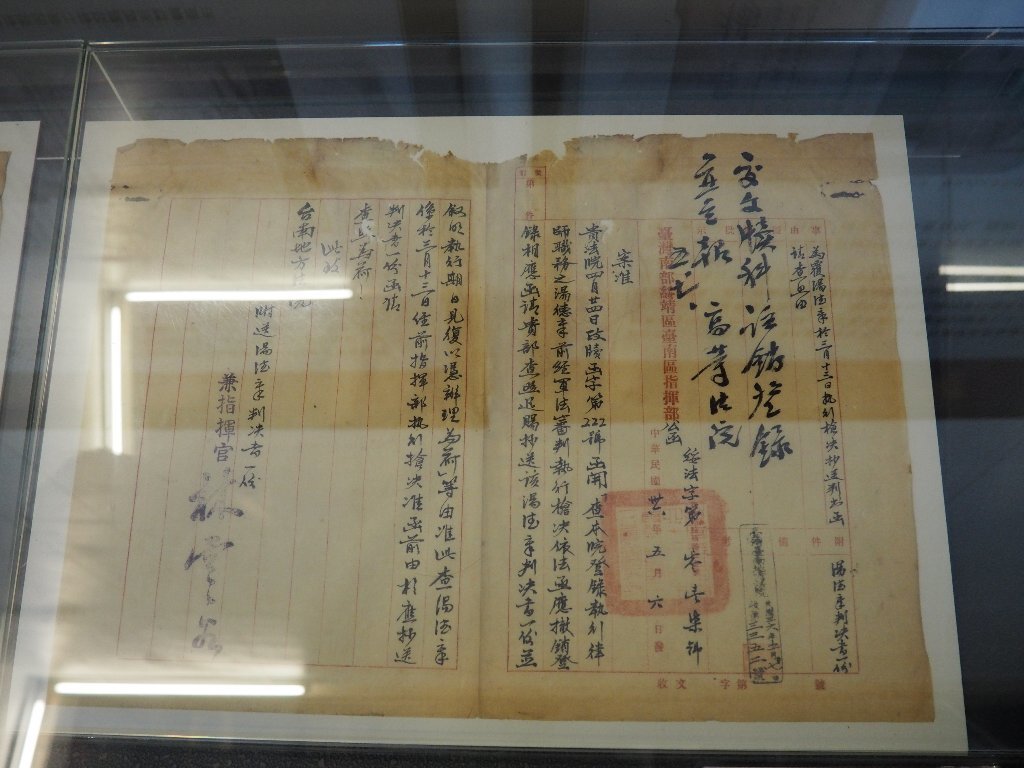 事由
為覆湯德章於三月十三日執行槍決抄送判決書函
請查照由
附件
湯德章判決書一份
備考
交文牘科註銷登錄
並呈報高等法院
五、七、
臺灣南部綏靖區臺南區指揮部公函
綏法字第
中華民國卅六年五月六日發
收文字第號
案准
貴法院四月廿四日政牘函字第222號函開「查本院登錄執行律
師職務之湯德章前經軍法審判執行槍決依法函應撤銷登
錄相應函請貴部查照迅賜抄送該湯德章判決書一份並
敘明執行期日見復以憑辦理為荷」等由准此查湯德章
係於三月十三日經前指揮部執行槍決准函前由相應抄送
判決書一份函請
查照為荷！
此致
台南地方法院
附送湯德章判決書一份
兼指揮官